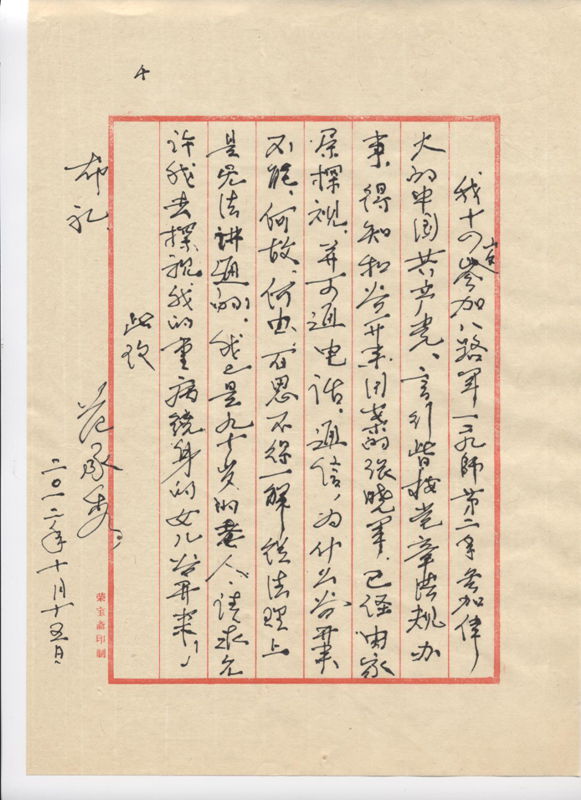 4
我十四岁参加八路军一二九师第二年参加伟
大的中国共产党、言行皆按党章法规办
事、得知和谷开来同案的张晓军、已经由家
属探视、并可通电话、通信，为什么谷开来
不能、何故、何由、百思不得一解、从法理上
是无法讲通的、我已是九十岁的老人、请求允
许我去探视我的重病缠身的女儿谷开来！
此致
布礼
范承秀。
二〇一二年十月十五日
荣宝斋印制